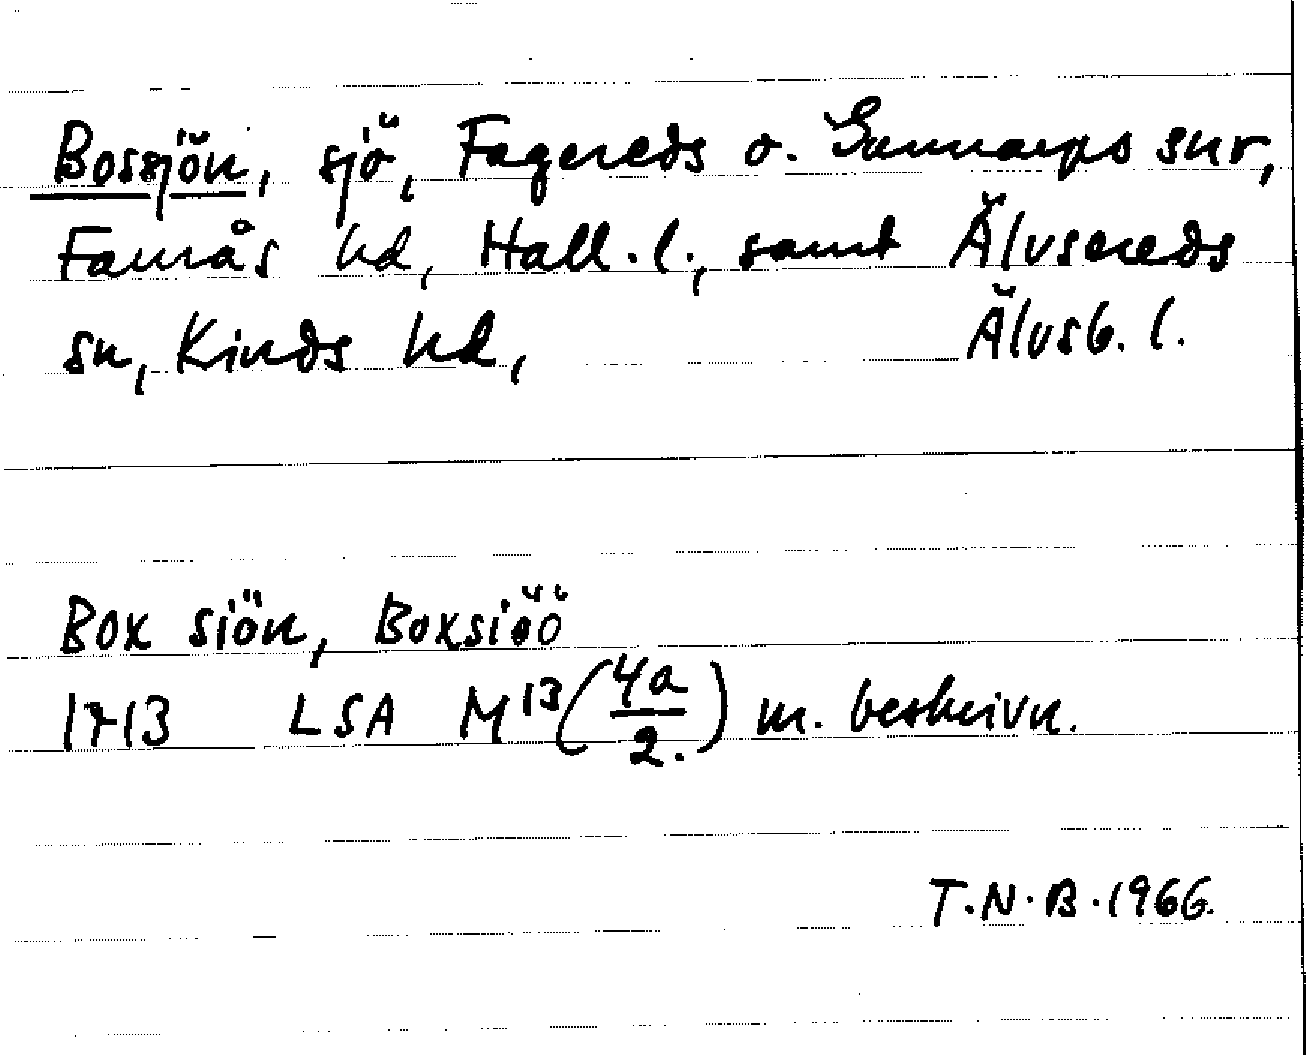 Bossjön, sjö, Fagereds o. Gunnarps snr,
Faurås hd, Hall. l., samt Älvsereds
sn, Kinds hd, Älvsb. l.
Box siön, Boxsiöö
1713 LSA M13 (4a/2.) m. beskrivn.
T.N.B. 1966.